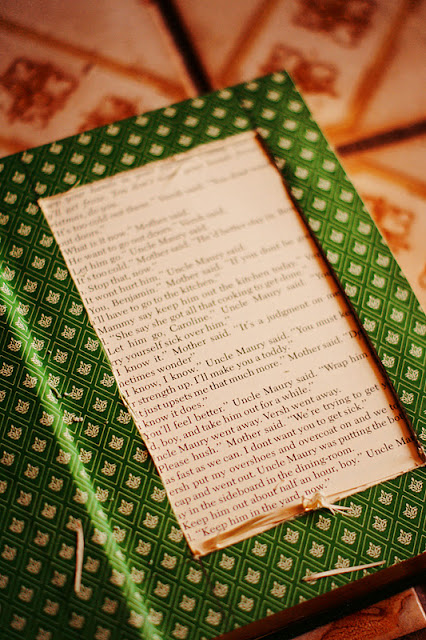 up your hands
get froze. You don't want
stmas, do you."
"It's too cold out there." Versh said. "You dont want
out doors."
"What is it now." Mother said.
"He want to go out doors." Versh said.
"Let him go." Uncle Maury said.
s too cold." Mother said. "He'd better stay in.
Stop that, now."
wont hurt him." Uncle Maury said.
You, Benjamin." Mother said. "If you dont be
'll have to go to the kitchen."
"Mammy say keep him out the kitchen today."
"She say she got all that cooking to get done."
Let him go, Caroline." Uncle Maury said. "You
yourself sick over him."
I know it." Mother said. "It's a judgment on
etimes wonder."
I know, I know." Uncle Maury said. "You must
strength up. I'll make you a toddy."
t just upsets me that much more." Mother said.
now it does."
feel better." Uncle Maury said. "Wrap him
boy, and take him out for a while."
cle Maury went away. Versh went away.
lease hush." Mother said. "We're trying to get
as fast as we can. I dont want you to get sick."
ersh put my overshoes and overcoat on and we
ap and went out. Uncle Maury was putting the
y in the sideboard in the dining-room.
Keep him out about half an hour, boy." Uncle
"Keep him in the yard, now."